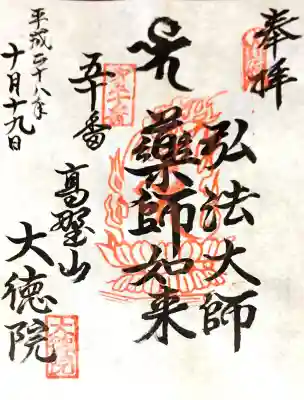 奉拝
弘法大師
薬師如来
五十番
高野山
大徳院
平成二十八年
十月十九日